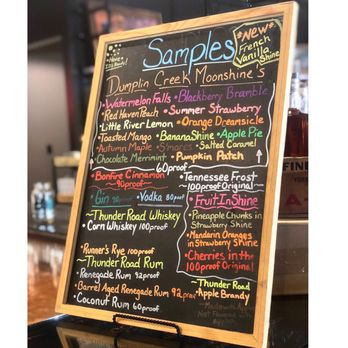 Samples
*NEW*
French
Vanilla
Shine
Dumplin Creek Moonshine's
•Watermelon Falls •Blackberry Bramble
•Red Haven Peach •Summer Strawberry
•Little River Lemon •Orange Dreamsicle
•Toasted Mango •Banana Shine •Apple Pie
•Autumn Maple •S'mores •Salted Caramel
•Chocolate Merrimint •Pumpkin Patch
60proof
•Bonfire Cinnamon
~90proof~
Tennessee Frost
~100proof Original~
•Gin •Vodka 80proof
•Fruit In Shine
~Thunder Road Whiskey
•Corn Whiskey 100proof
•Pineapple Chunks in
Strawberry Shine
•Mandarin Oranges
in Strawberry Shine
•Runner's Rye 100proof
~Thunder Road Rum
•Cherries in the
100proof Original
•Renegade Rum 92proof
•Barrel Aged Renegade Rum 92proof
•Coconut Rum 60proof
~Thunder Road
•Apple Brandy